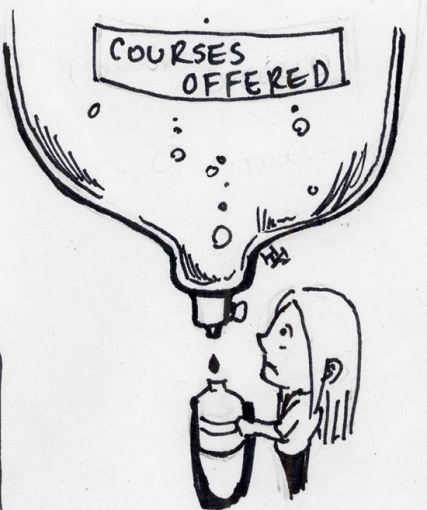 COURSES
OFFERED